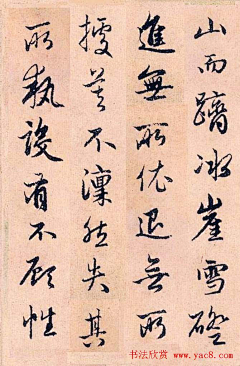 山而躋冰崖雪磴
進無所依退無所
據莫不凜然失其
所執設有不顧性
书法欣赏
www.yac8.com